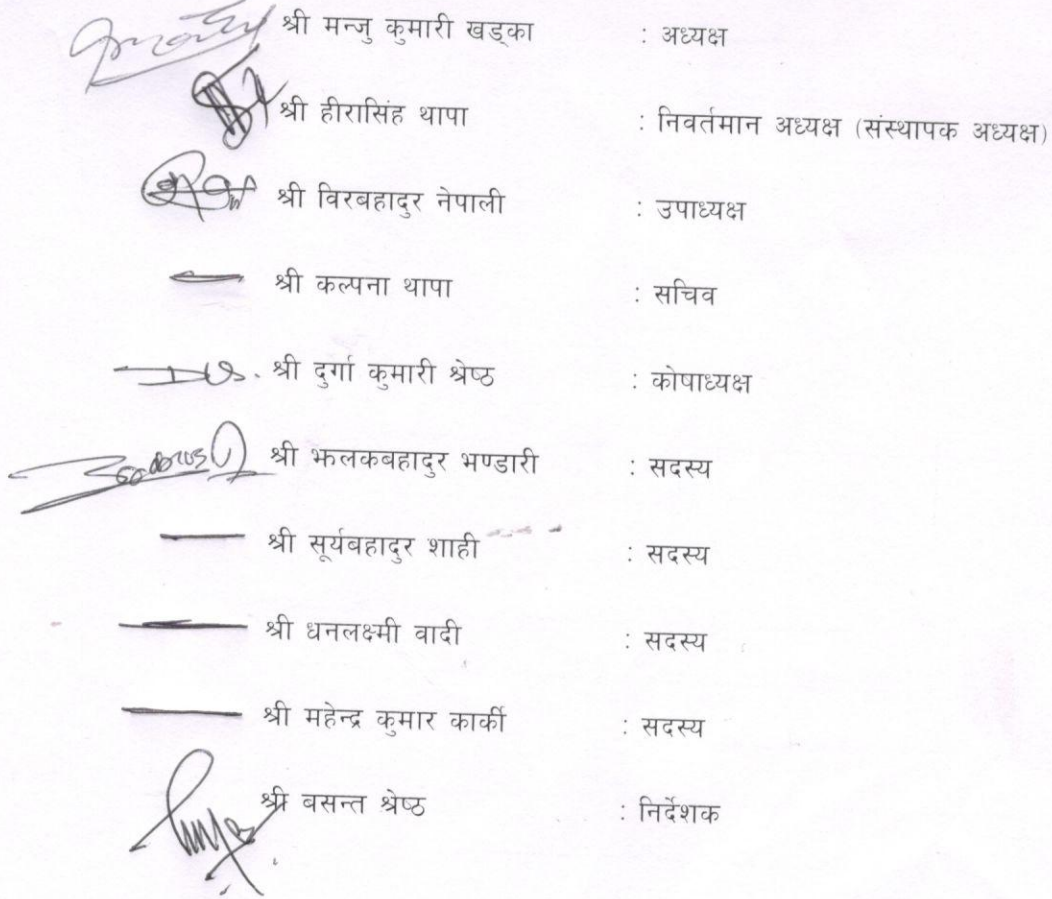 श्री मन्जु कुमारी खड्का : अध्यक्ष
श्री हीरासिंह थापा : निवर्तमान अध्यक्ष (संस्थापक अध्यक्ष)
श्री विरबहादुर नेपाली : उपाध्यक्ष
श्री कल्पना थापा : सचिव
श्री दुर्गा कुमारी श्रेष्ठ : कोषाध्यक्ष
श्री झलकबहादुर भण्डारी : सदस्य
श्री सूर्यवहादुर शाही : सदस्य
श्री धनलक्ष्मी वादी : सदस्य
श्री महेन्द्र कुमार कार्की : सदस्य
श्री बसन्त श्रेष्ठ : निर्देशक